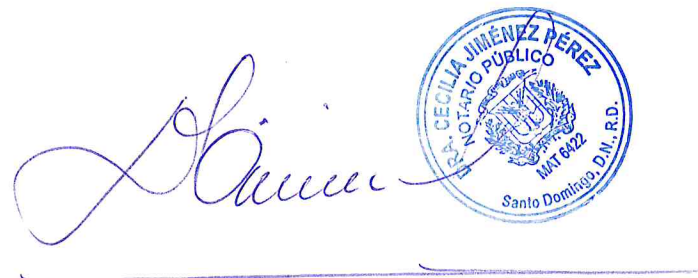 DRA. CECILIA JIMÉNEZ PÉREZ
NOTARIO PÚBLICO
MAT 6422
Santo Domingo, D.N., R.D.